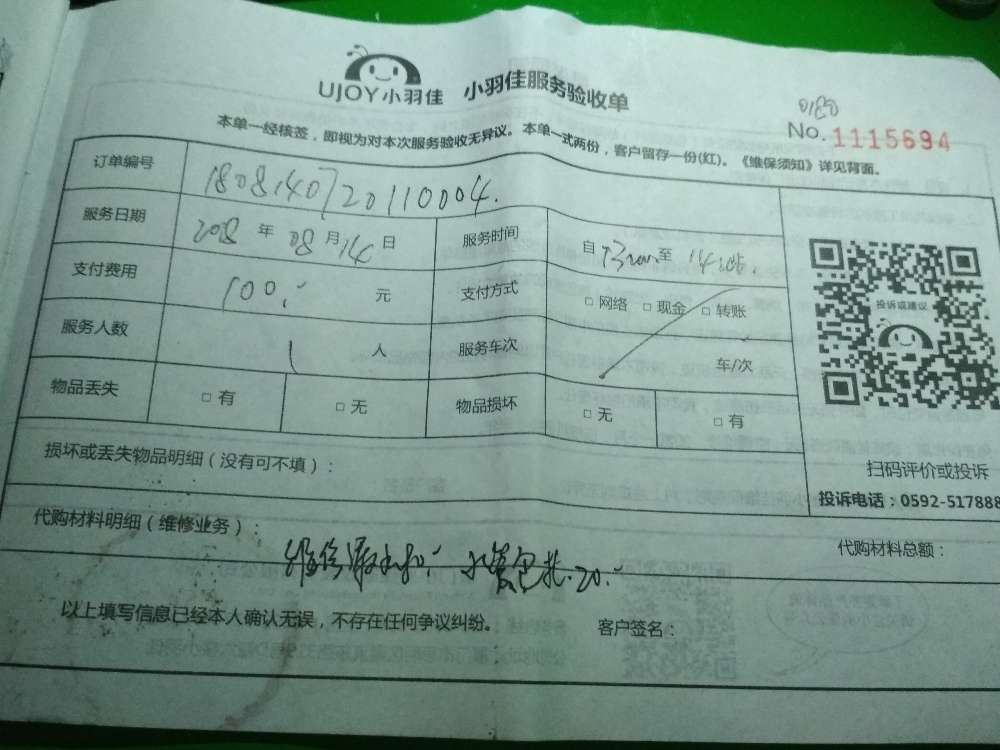 UJOY小羽佳 小羽佳服务验收单
0180
No. 1115694
本单一经核签，即视为对本次服务验收无异议。本单一式两份，客户留存一份(红)。《维保须知》详见背面。
订单编号 1808140720110004.
服务日期 2018 年 08 月 14 日 服务时间 自 至
支付费用 100. 元 支付方式 □ 网络 □ 现金 □ 转账
服务人数 1 人 服务车次 车/次
物品丢失 □ 有 □ 无 物品损坏 □ 无 □ 有
投诉或建议
扫码评价或投诉
投诉电话：0592-517888
损坏或丢失物品明细（没有可不填）：
代购材料明细（维修业务）： 代购材料总额：
维修 水管包扎.20.
以上填写信息已经本人确认无误，不存在任何争议纠纷。 客户签名：